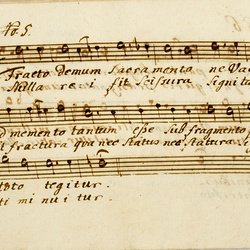 No. 5.
Fracto Demum Sacramento ne Va
Nulla rei fit scissura signi ta
d memento tantum esse sub fragmento
t fractura qua nec status nec statura si
toto tegitur.
ti mi nu i tur.